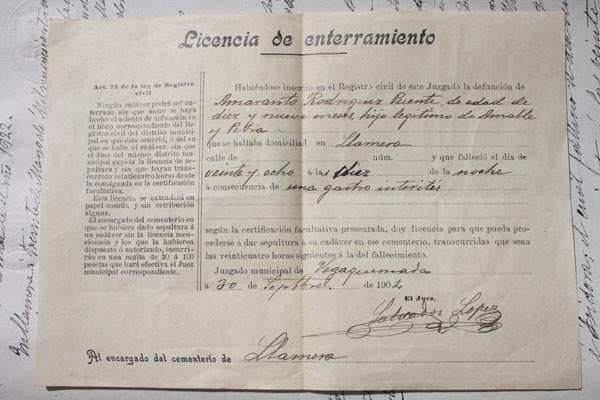 Licencia de enterramiento
Art. 75 de la ley de Registro
civil
Ningún cadáver podrá ser en-
terrado sin que antes se haya
hecho el asiento de defunción en
el libro correspondiente del Re-
gistro civil del distrito munici-
pal en que ésta ocurrió, ó del en
que se halle el cadáver, sin que
el Juez del mismo distrito mu-
nicipal expida la licencia de se-
pultura y sin que hayan trans-
currido veinticuatro horas desde
la consignada en la certificación
facultativa.
Esta licencia se extenderá en
papel común y sin retribución
alguna.
El encargado del cementerio en
que se hubiere dado sepultura á
un cadáver sin la licencia men-
cionada y los que la hubieren
dispuesto ó autorizado, incurri-
rán en una multa de 20 á 100
pesetas que hará efectiva el Juez
municipal correspondiente.
Habiéndose inscrito en el Registro civil de este Juzgado la defunción de
Amaranto Rodriguez Puente, de edad de
diez y nueve meses, hijo legitimo de Amable
y Petra
que se hallaba domiciliad en Llamera
calle de núm. y que falleció el día de
veinte y ocho á las diez de la noche
á consecuencia de una gastro interités
según la certificación facultativa presentada, doy licencia para que pueda pro-
cederse á dar sepultura á su cadáver en ese cementerio, transcurridas que sean
las veinticuatro horas siguientes á la del fallecimiento.
Juzgado municipal de Vegaquemada
á 30 de Septbre. de 1902
El Juez.
Salvador Lopez
Al encargado del cementerio de Llamera